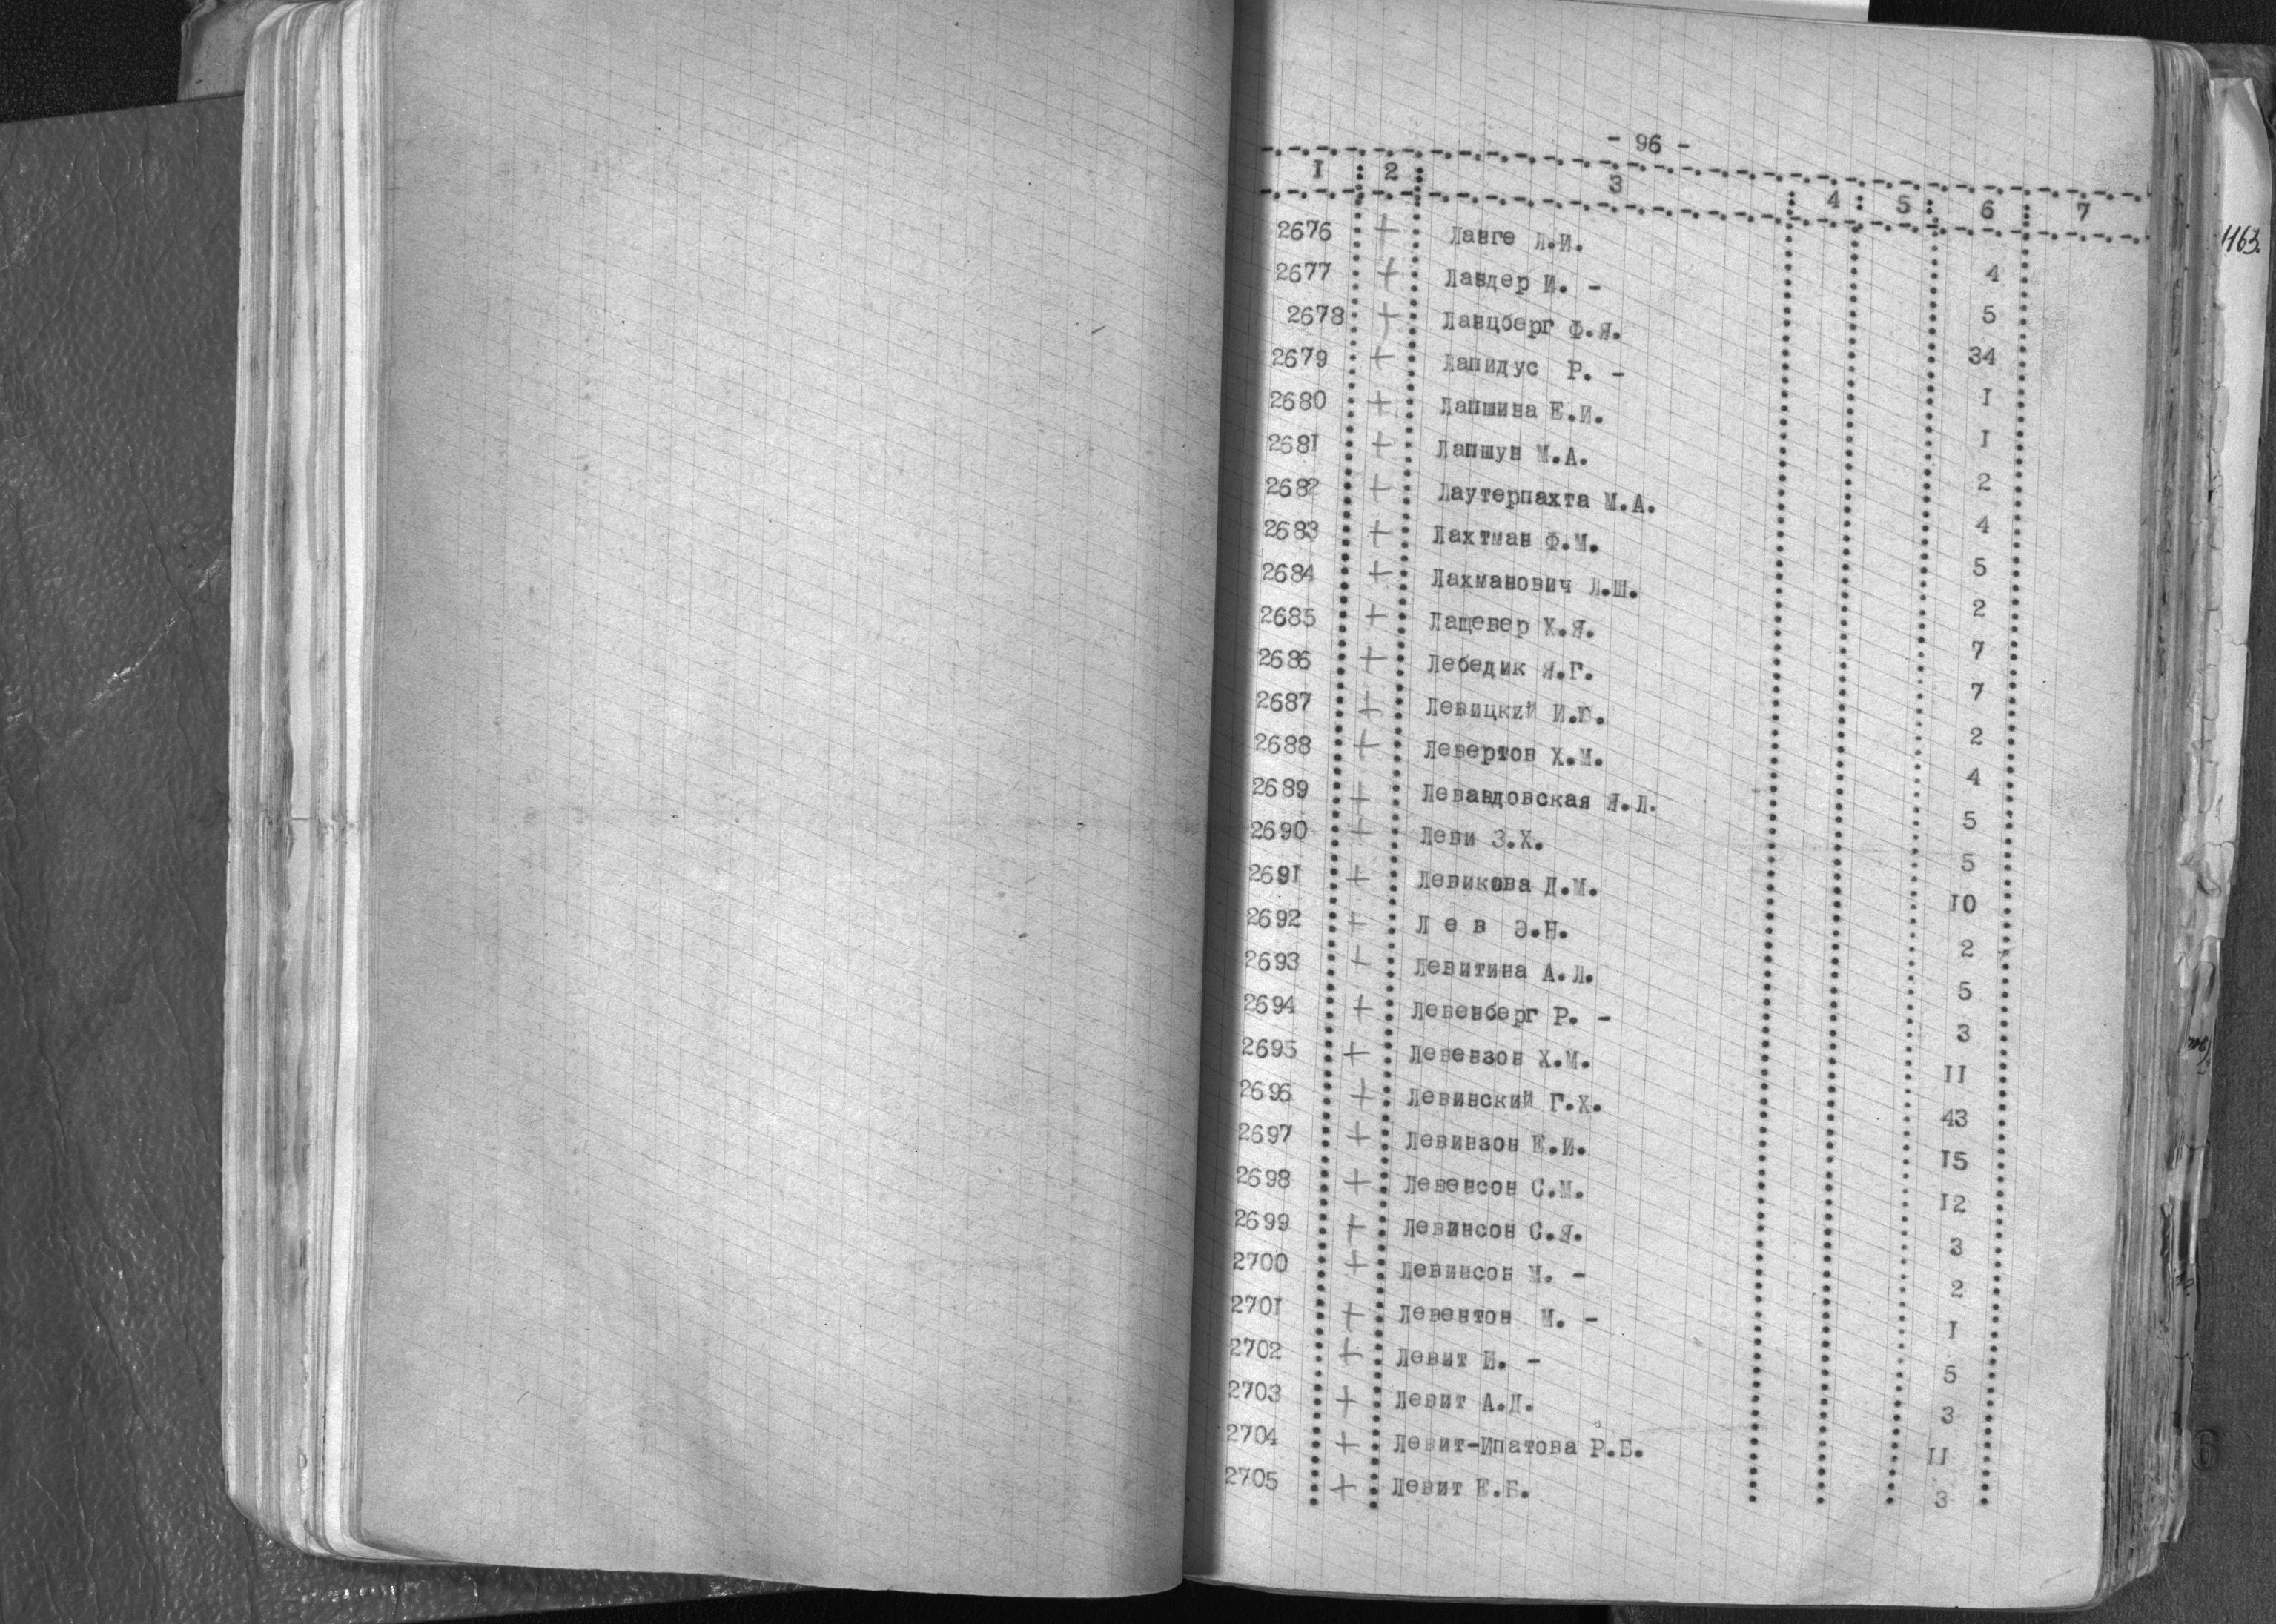 - 96 -
I 2 3 4 5 6 7
1163.
2676 + Ланге Л.И. 4
2677 + Ландер И. - 5
2678 + Ланцберг Ф.Я. 34
2679 + Лапидус Р. - I
2680 + Лапшина Е.И. I
2681 + Лапшун М.А. 2
2682 + Лаутерпахта М.А. 4
2683 + Лахтман Ф.М. 5
2684 + Лахманович Л.Ш. 2
2685 + Лащевер Х.Я. 7
2686 + Лебедик Я.Г. 7
2687 + Левицкий 2
2688 + Левертов Х.М. 4
2689 + Левандовская Я.Л. 5
2690 + Леви З.Х. 5
2691 + Левикова Д.М. IO
2692 + Л е в Э.Н. 2
2693 + Левитина А.Л. 5
2694 + Левенберг Р. - 3
2695 + Левензон Х.М. II
2696 + Левинский Г.Х. 43
2697 + Левинзон Е.И. I5
2698 + Левенсон С.М. I2
2699 + Левинсон С.Я. 3
2700 + Левинсон М. - 2
2701 + Левентон М. - I
2702 + Левит - 5
2703 + Левит А.Д. 3
2704 + Левит-Ипатова Р.Б. II
2705 + Левит Е.Б. 3